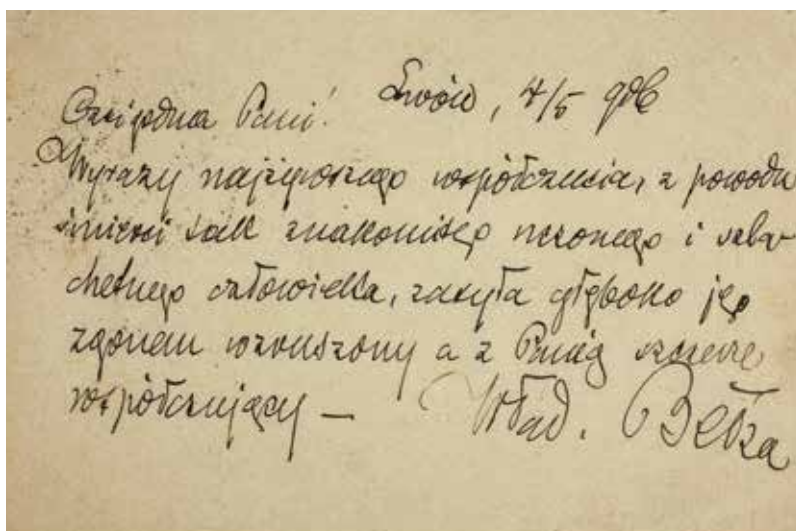 Czcigodna Pani! Lwów, 4/5 906
Wyrazy najżywszego współczucia, z powodu
śmierci tak znakomitego uczonego i szla-
chetnego człowieka, zasyła głęboko jego
zgonem wzruszony a z Panią szczerze
współczujący —
Wład. Bełza